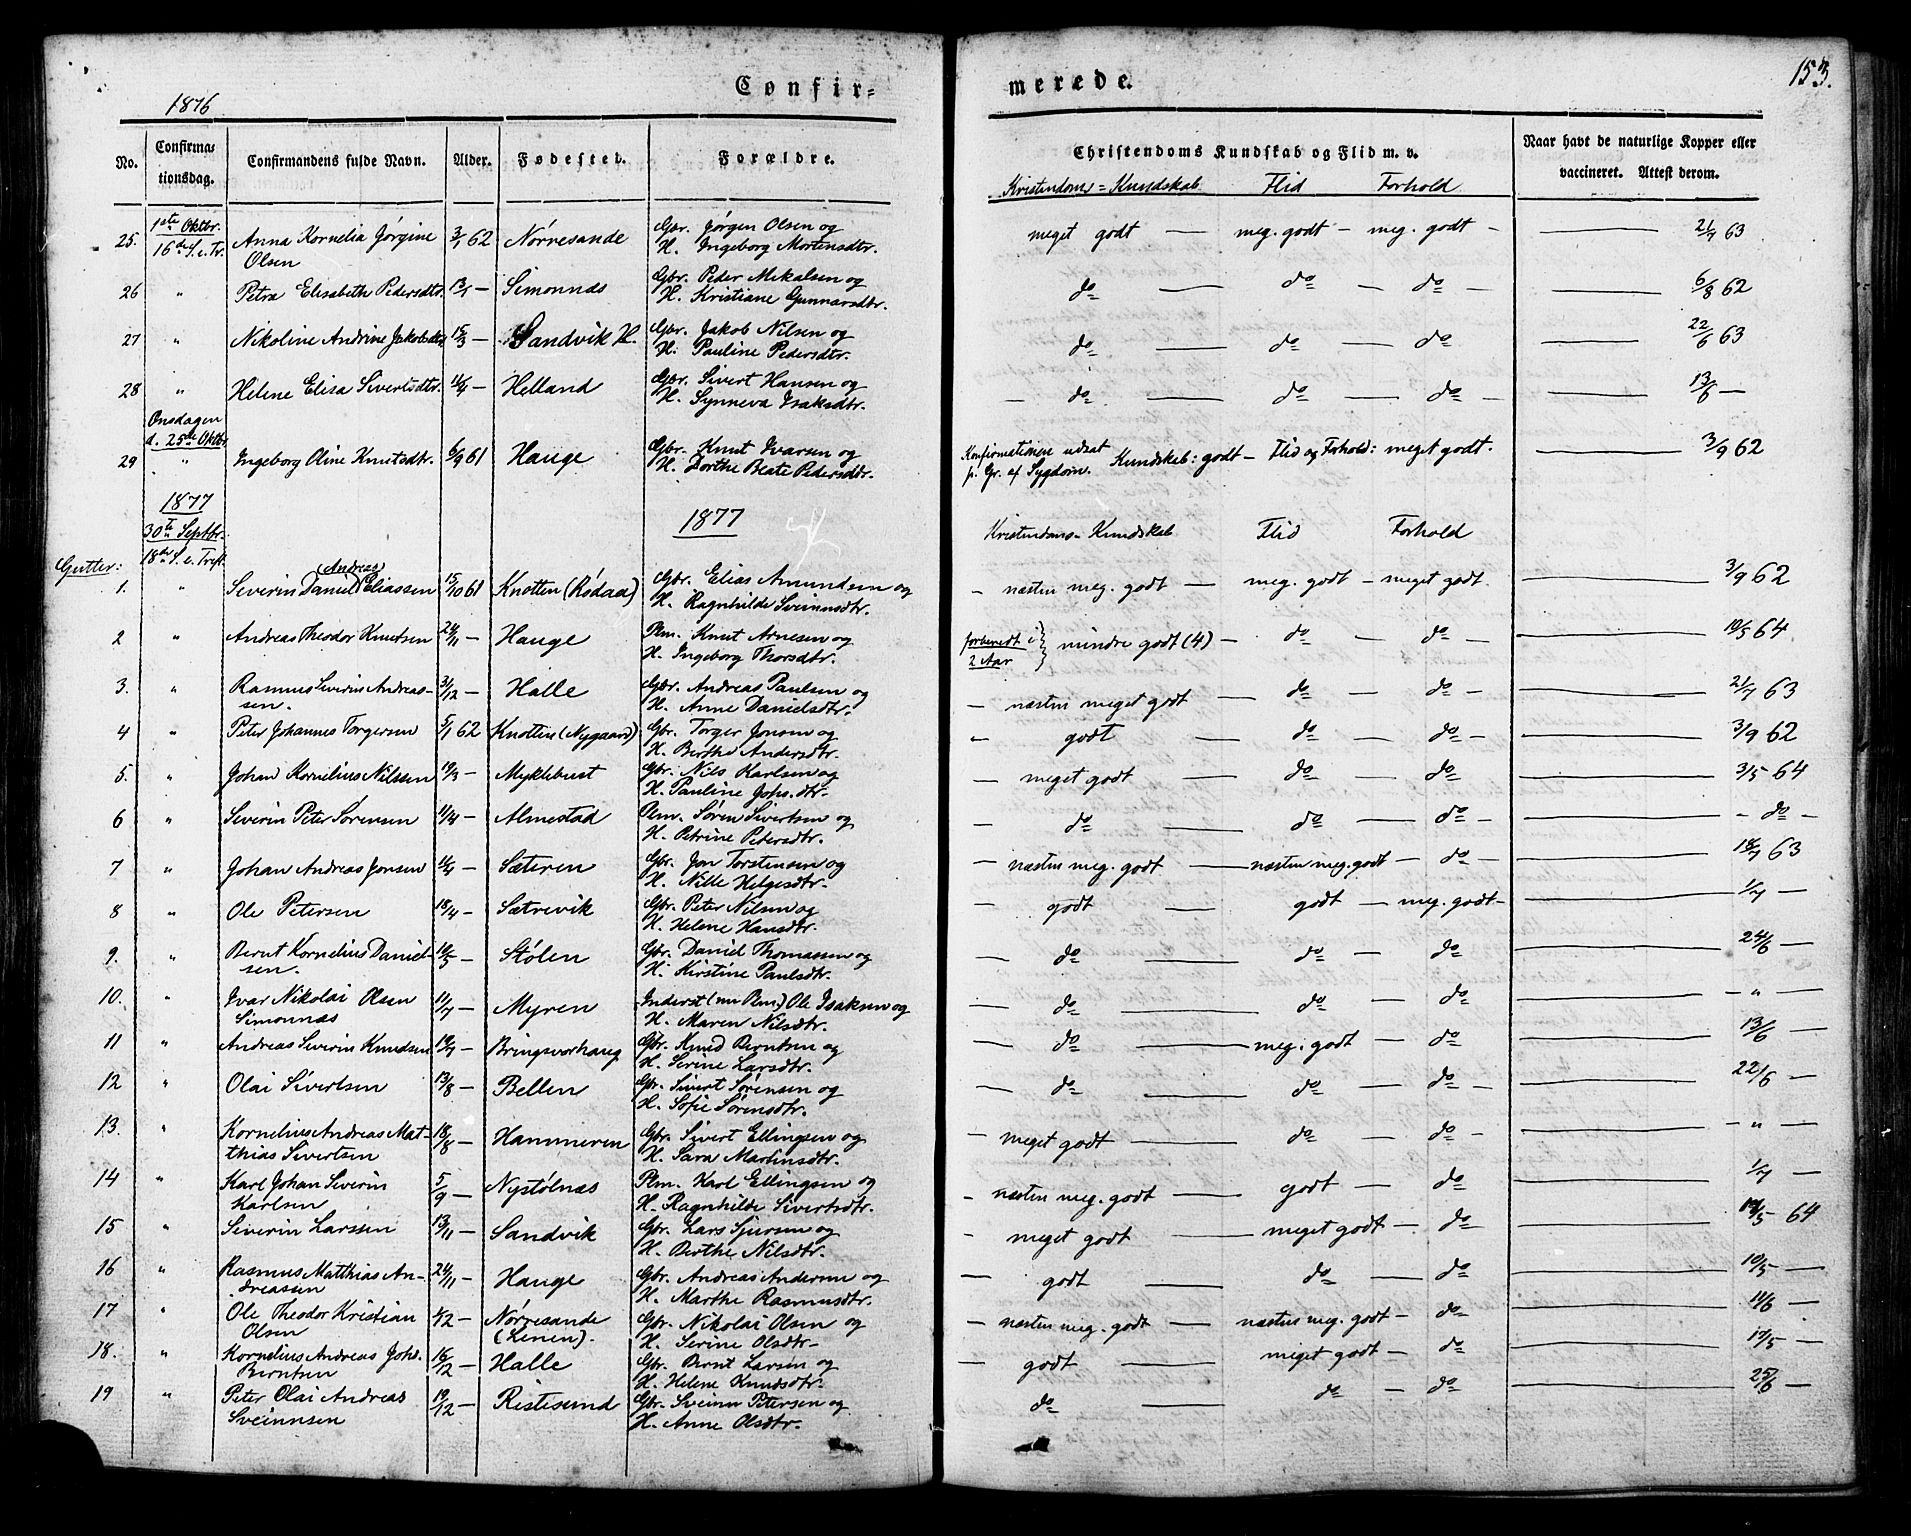 1876
Confir=
merede.
153.
No. Confirma=tionsdag. Confirmandens fulde Navn. Alder. Fødested. Forældre. Christendoms Kundskab og Flid m. v. Naar havt de naturlige Kopper eller vaccineret. Attest derom.
Kristendoms=Kundskab Flid Forhold
1ste Oktbr. 16de S. e. Tr.
25. Anna Kornelia Jørgine 3/1 62 Nørresande Gbr. Jørgen Olsen og meget godt — meg. godt — meg. godt — 21/7 63
Olsen H. Ingeborg Mortensdtr.
26 " Petra Elisabeth Pedersdtr. 13/1 — Simonnæs Gbr. Peder Mekalsen og do — do — do — 6/8 62
H. Kristiane Gunnarsdtr.
27 " Nikoline Andrine Jakobsdtr 15/3 — Sandvik H. Gbr. Jakob Nilsen og do — do do 22/6 63
H. Pauline Pedersdtr.
28 " Helene Elisa Sivertsdtr. — Helland Gbr. Sivert Hansen og — do — do — do — 13/6 —
H. Synneva Isaksdtr.
Onsdagen d. 25de Oktbr
29 " Ingeborg Oline Knutsdtr. 6/9 61 Hauge Gbr. Knut Ivarsen og Konfirmationen udsat p. Gr. af Sygdom. Kundskab: godt — Flid og Forhold: meget godt. 3/9 62
H. Dorthe Beate Pedersdtr.
1877
1877
30te Septbr. 18de S. e. Tref.
Kristendoms-Kundskab Flid Forhold
Gutter:
1. " Severin Daniel (Andreas) Eliassen 15/10 61 Knotten (Rødaa) Gbr. Elias Amundsen og — næsten meg. godt — meg. godt — meget godt. 3/9 62
H. Ragnhilde Sveinnsdtr.
2 " Andreas Theodor Knutsen 24/11 — Hauge Plm. Knut Arnesen og forberedt i 2 Aar } mindre godt (4) — do — do — 10/5 64
H. Ingeborg Thorsdtr.
3. " Rasmus Severin Andreas- 31/12 — Halle Gbr. Andreas Paulsen og — næsten meget godt do — do — 21/7 63
sen. H. Anne Danielsdtr.
4 " Peter Johannes Torgersen 5/1 62 Knotten (Nygaard) Gbr. Torger Jonsen og " godt — do — do — 3/9 62
H. Berthe Andersdtr.
5. " Johan Kornelius Nilssen 19/3 — Myklebust Gbr. Nils Karlsen og — meget godt — do — do — 3/5 64
H. Pauline Johs.dtr.
6 " Severin Peter Sørensen 11/4 — Almestad Plm. Søren Sivertsen og — do — do — do — — do —
H. Petrine Pedersdtr.
7 " Johan Andreas Jonsen — Sæteren Gbr. Jon Torstensen og — næsten meg. godt — næsten meg. godt — do — 18/7 63
H. Nille Helgesdtr.
8 " Ole Petersen 18/4 — Sætrevik Gbr. Peter Nilsen og — godt — godt — meg. godt — 1/7 —
H. Helene Hansdtr.
9. " Bernt Kornelius Daniel- — Stølen Gbr. Daniel Thomassen og — do — do — do 24/6 —
sen. H. Kirstine Paulsdtr.
10. " Ivar Nikolai Olsen 11/7 — Myren Inderst (nu Plm.) Ole Isaksen og — do — do — do — " —
Simonnæs H. Maren Nilsdtr.
11 " Andreas Severin Knudsen 19/7 — Bringsvorhaug Gbr. Knud Berntsen og — do — meg. godt — do — 13/6 —
H. Serine Larsdtr.
12 " Olai Sivertsen 13/8 — Bellen Gbr. Sivert Sørensen og — do — do — do — 22/6 —
H. Sofie Sørensdtr.
13. " Kornelius Andreas Mat- 18/8 — Hammeren Gbr. Sivert Ellingsen og — meget godt — do — do — — " —
thias Sivertsen H. Sara Martinsdtr.
14 " Karl Johan Severin 5/9 — Nystølnæs Plm. Karl Ellingsen og — næsten meg. godt — godt — do 1/7 —
Karlsen H. Ragnhilde Sivertsdtr.
15 " Severin Larssen 13/11 — Sandvik Gbr. Lars Sjursen og — meget godt — meget godt — do 64
H. Berthe Nilsdtr.
16 " Rasmus Matthias An- 24/11 — Hauge Gbr. Andreas Andersen og — godt — do — do — 10/5 —
dreasen H. Marthe Rasmusdtr.
17 " Ole Theodor Kristian — Nørresande Gbr. Nikolai Olsen og — næsten meg. godt — næsten meg. godt — do — —
Olsen (Lenen). H. Serine Olsdtr.
18. " Kornelius Andreas Johs. 16/12 — Halle Gbr. Bernt Larsen og — godt — meget godt — do —
Berntsen H. Helene Knudsdtr.
19 " Peter Olai Andreas 19/12 — Ristesund Gbr. Sveinn Petersen og do — do — do — 25/6 —
Sveinnsen H. Anne Olsdtr.